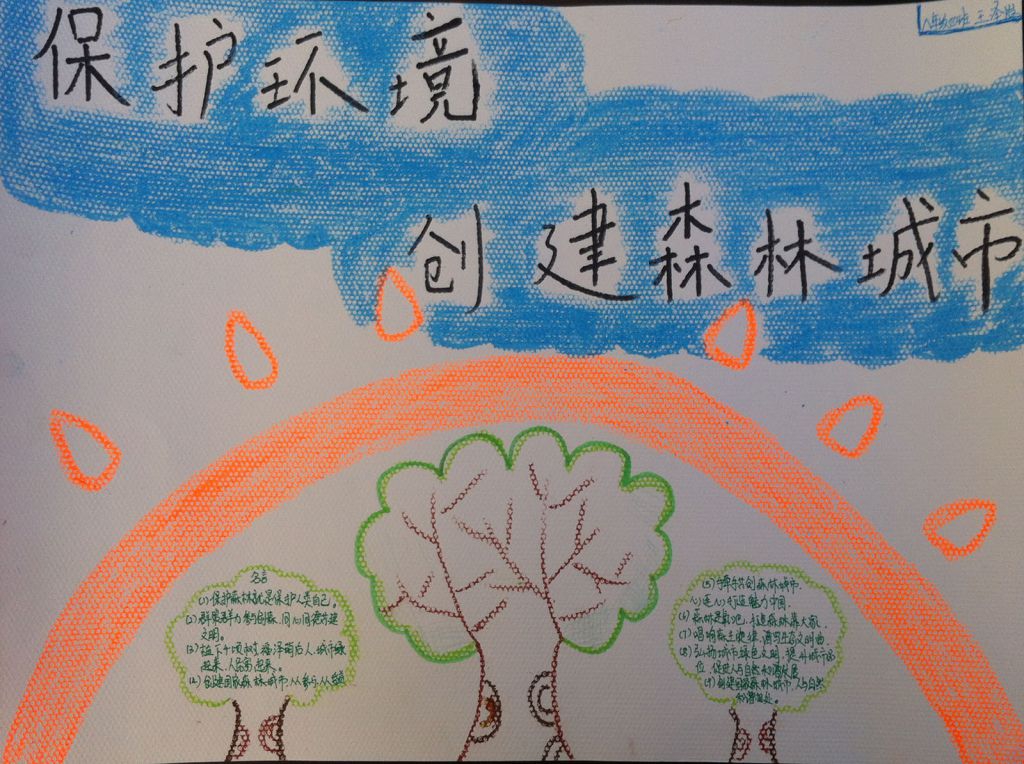 八年级四班 王
保护环境
创建森林城市
名言
(1)保护森林就是保护人类自己。
(2)群策群力参与创森,同心同德共建
文明。
(3)植下千顷树,福泽萌后人,城市绿
起来,人民富起来。
(4)创建国家森林城市,从参与,从
(5)携手共创森林城市,
心连心打造魅力中国.
(6)森林是氧吧,手造森林靠大家.
(7)唱响森主旋律,谱写生态文明曲.
(8)弘扬城市绿色文明,提升城市品
位,促进人与自然和谐发展
(9)创建国家森林城市,人与自然
和谐相处。